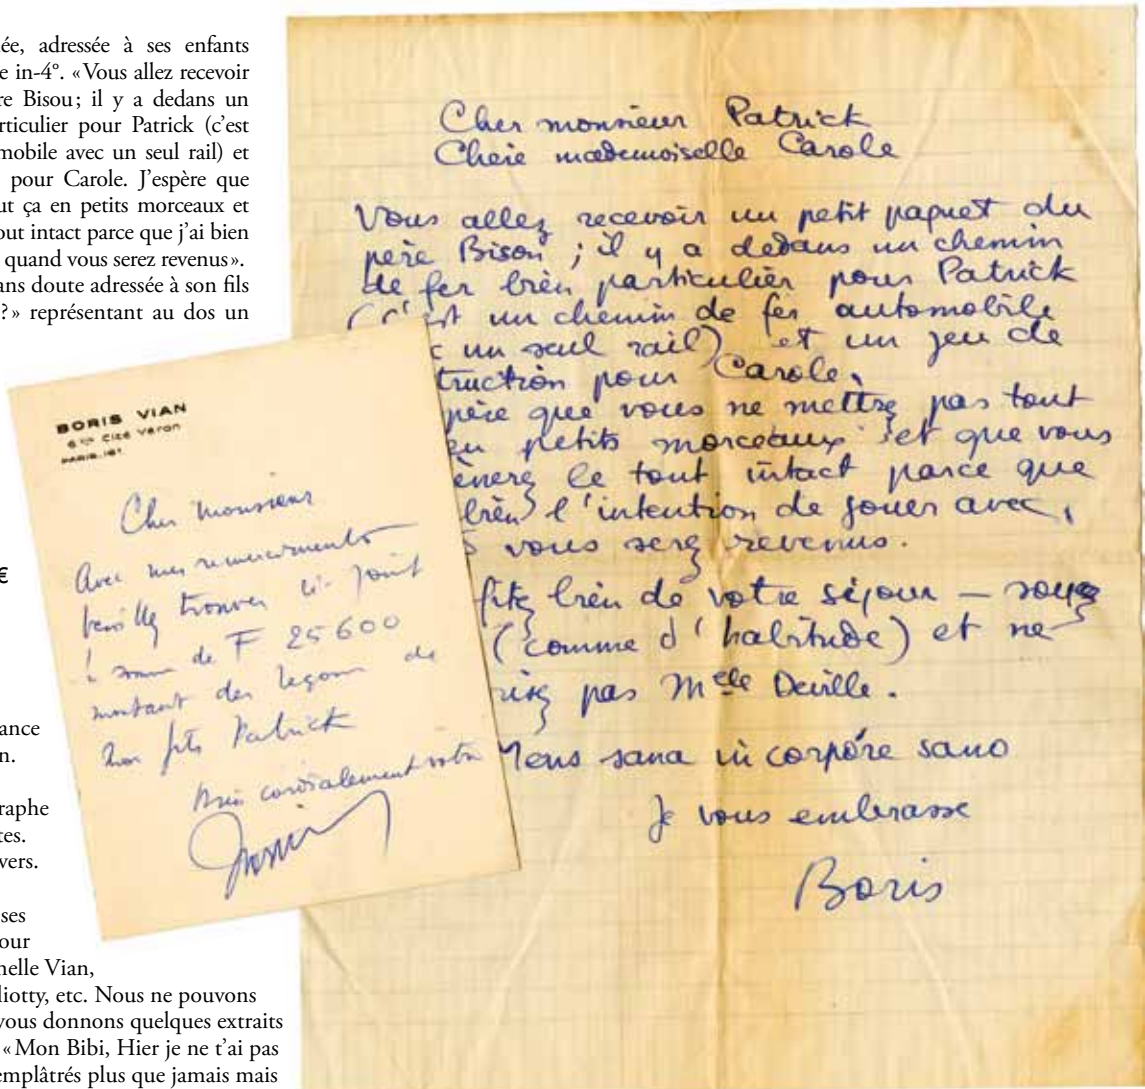 ée, adressée à ses enfants
e in-4°. «Vous allez recevoir
re Bisou; il y a dedans un
rticulier pour Patrick (c'est
mobile avec un seul rail) et
pour Carole. J'espère que
ut ça en petits morceaux et
out intact parce que j'ai bien
quand vous serez revenus».
ans doute adressée à son fils
?» représentant au dos un
€
ance
n.
raphe
tes.
vers.
ses
our
nelle Vian,
liotty, etc. Nous ne pouvons
vous donnons quelques extraits
«Mon Bibi, Hier je ne t'ai pas
emplâtrés plus que jamais mais
BORIS VIAN
6 bis Cité Véron
PARIS. 18e
Cher Monsieur
Avec mes remerciements
veuillez trouver ci-joint
la somme de F 25600
montant des leçons de
mon fils Patrick
Bien cordialement votre
Cher monsieur Patrick
Chère mademoiselle Carole
Vous allez recevoir un petit paquet du
père Bison ; il y a dedans un chemin
de fer bien particulier pour Patrick
(c'est un chemin de fer automobile
c un seul rail) et un jeu de
truction pour Carole,
père que vous ne mettrez pas tout
en petits morceaux et que vous
ènerez le tout intact parce que
bien l'intention de jouer avec,
vous serez revenus.
fitez bien de votre séjour — soyez
(comme d'habitude) et ne
risez pas Melle Deville.
Mens sana in corpore sano
Je vous embrasse
Boris